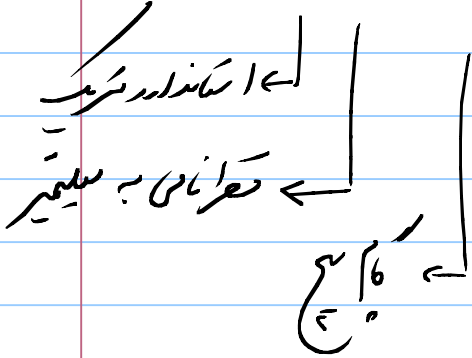 استاندارد متریک
قطر نامی به میلیمتر
گام پیچ